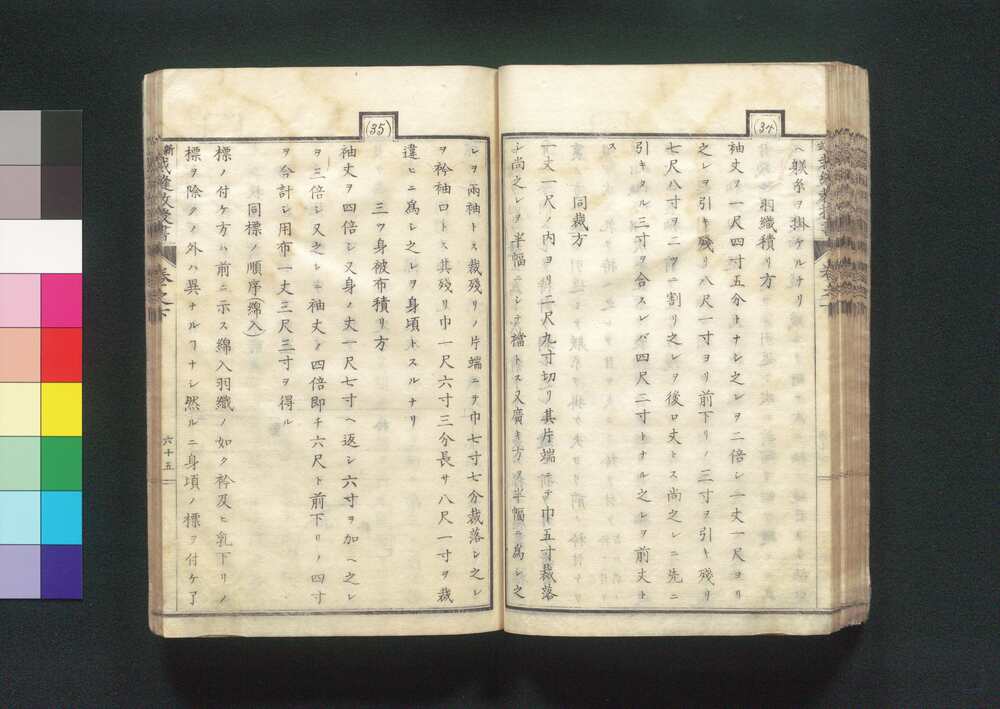 (34)
ヘ躾糸ヲ掛ケルナリ
羽織積リ方
袖丈ヲ一尺四寸五分トナシ之レヲ二倍シ一丈一尺ヨリ
之レヲ引キ残リ八尺一寸ヨリ前下リノ三寸ヲ引キ残リ
七尺八寸ヲ二ツニ割リ之レヲ後ロ丈トス尚之レニ先ニ
引キタル三寸ヲ合スレバ四尺二寸トナル之レヲ前丈ト
ス
同裁方
一丈一尺ノ内ヨリ二尺九寸切リ其片端ニテ巾五寸裁落
シ尚之レヲ半幅ニシテ襠トス又廣キ方ヲ半幅ニ爲シ之
(35)
レヲ兩袖トス裁殘リノ片端ニテ巾七寸七分裁落シ之レ
ヲ衿袖口トス其殘リ巾一尺六寸三分長サ八尺一寸ヲ裁
違ヒニ爲シ之レヲ身頃トスルナリ
三ツ身被布積リ方
袖丈ヲ四倍シ又身ノ丈一尺七寸ヘ返シ六寸ヲ加ヘ之レ
ヲ三倍シ又之レニ袖丈ノ四倍即チ六尺ト前下リノ四寸
ヲ合計シ用布一丈三尺三寸ヲ得ル
同標ノ順序(綿入)
標ノ付ケ方ハ前ニ示ス綿入羽織ノ如ク衿及ヒ乳下リノ
標ヲ除クノ外ハ異ナルヿナシ然ルニ身頃ノ標ヲ付ケ了
新
裁縫教授書
卷之下
六十五